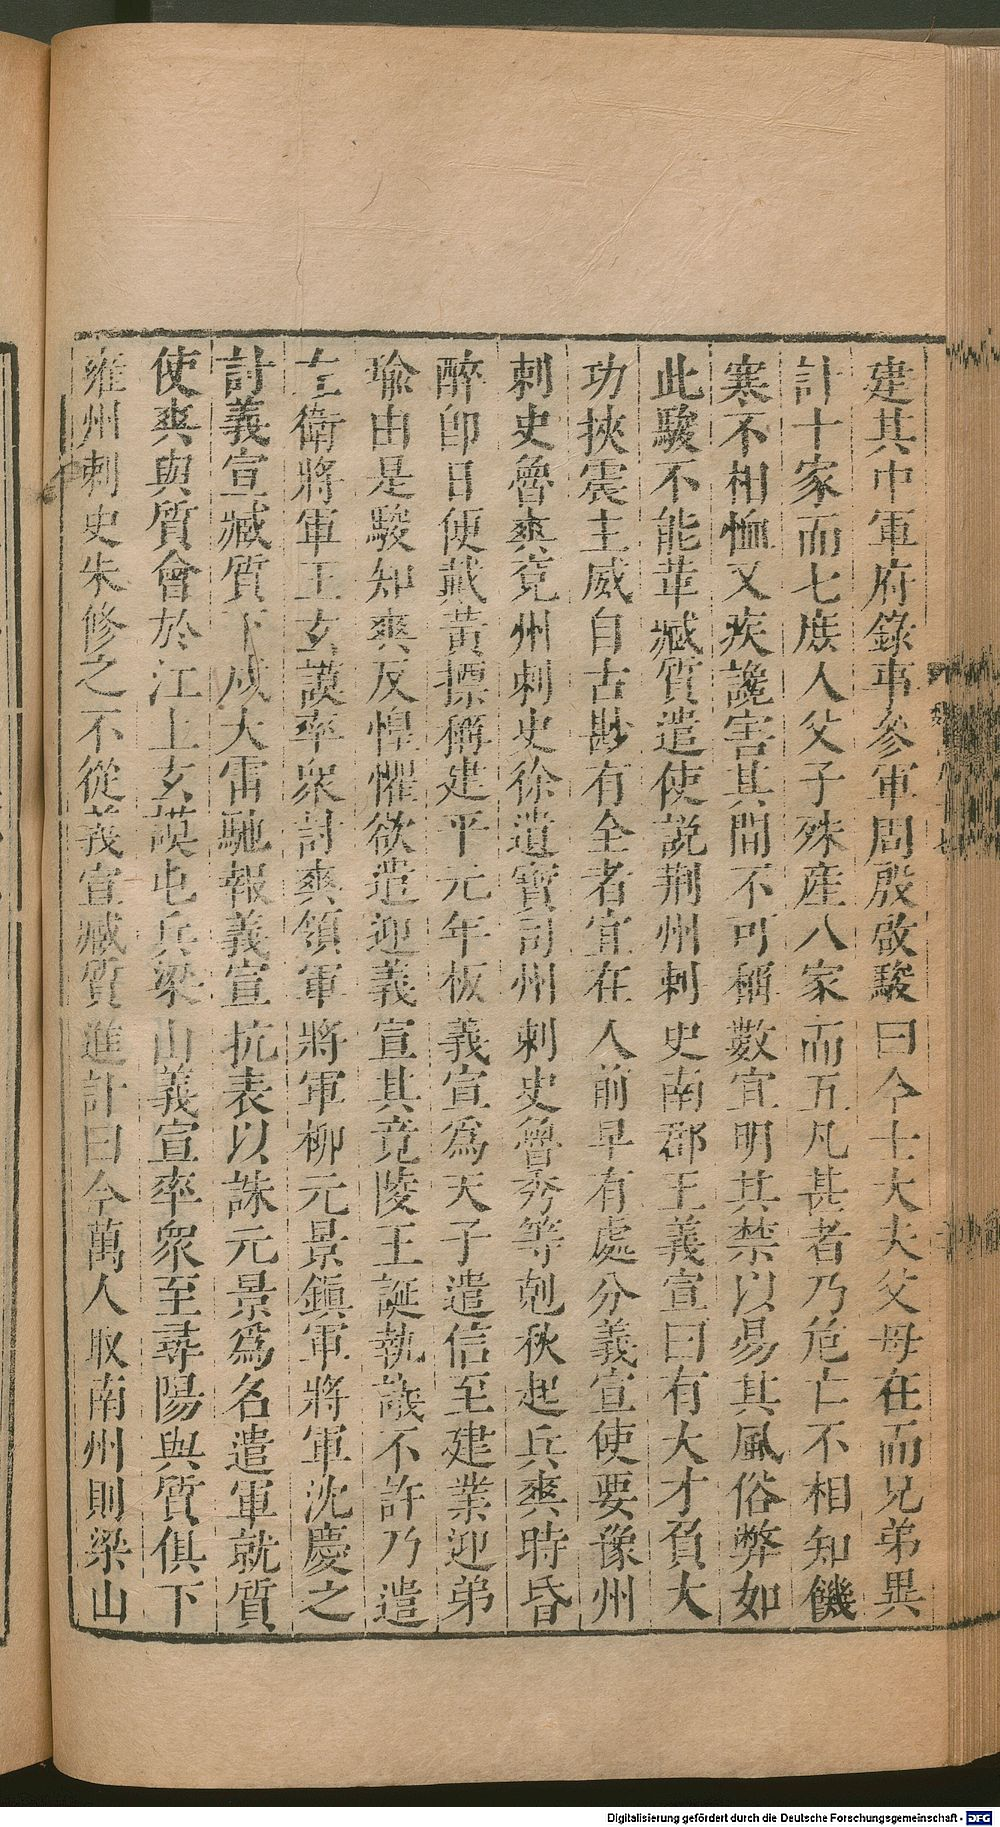 建其中軍府錄事參軍周殷啟駿曰今士大夫父母在而兄弟異
計十家而七庶人父子殊產八家而五凡甚者乃危亡不相知饑
寒不相恤又疾讒害其間不可稱數宜明其禁以易其風俗弊如
此駿不能革臧質遣使說荆州刺史南郡王義宣曰有大才負大
功挾震主威自古尠有全者宜在人前早有處分義宣使要豫州
刺史魯爽兗州刺史徐遺寶司州刺史魯秀等剋秋起兵爽時昏
醉卽日便戴黃摽稱建平元年板義宣爲天子遣信至建業迎弟
瑜由是駿知爽反惶懼欲遣迎義宣其竟陵王誕執議不許乃遣
左衛將軍王玄謨率衆討爽領軍將軍柳元景鎭軍將軍沈慶之
討義宣臧質下戍大雷馳報義宣抗表以誅元景爲名遣軍就質
使爽與質會於江上玄謨屯兵梁山義宣率衆至尋陽與質俱下
雍州刺史朱修之不從義宣臧質進計曰今萬人取南州則梁山
Digitalisierung gefördert durch die Deutsche Forschungsgemeinschaft - DFG